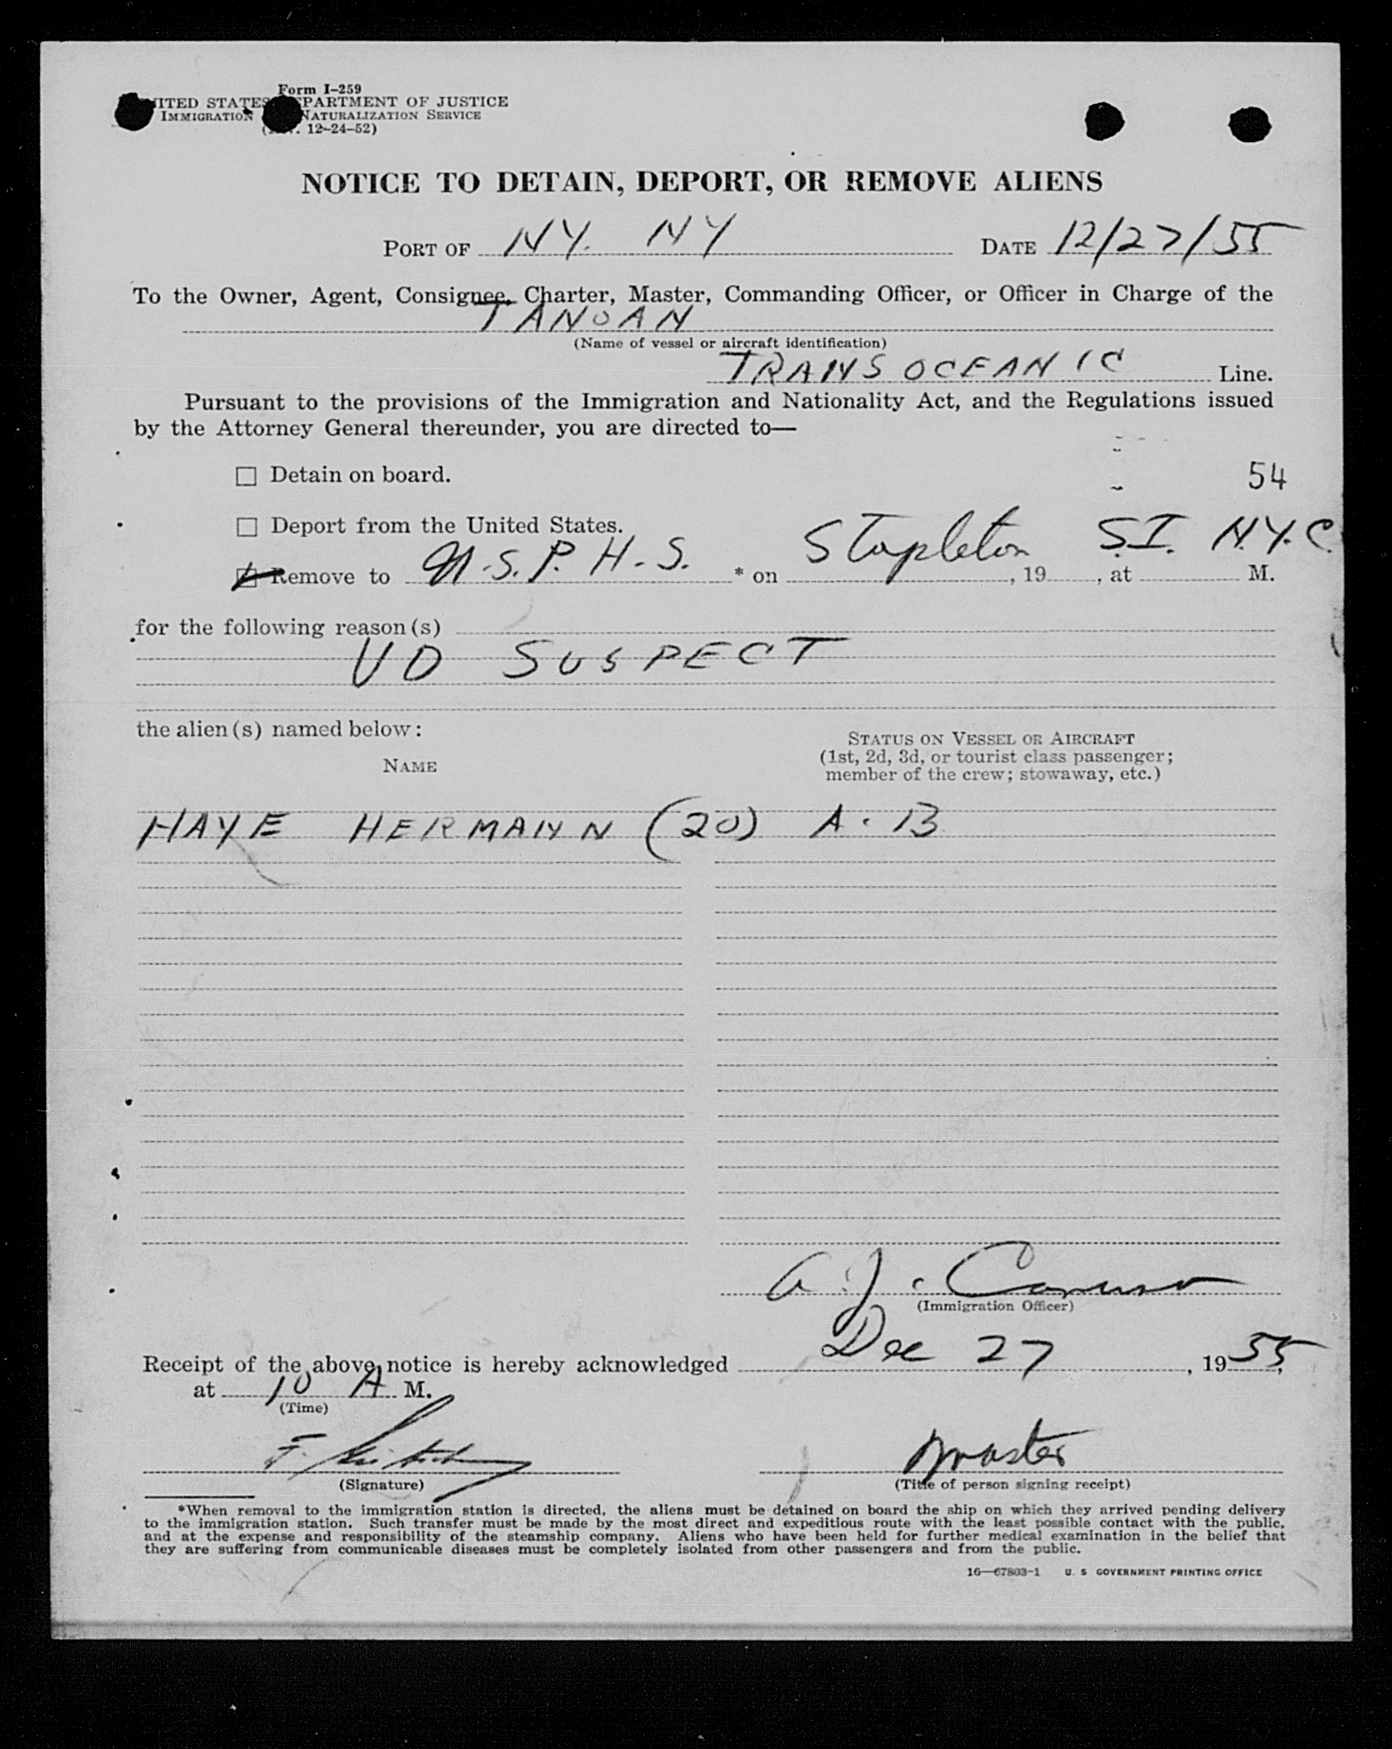 Form I-259
UNITED STATES DEPARTMENT OF JUSTICE
IMMIGRATION NATURALIZATION SERVICE
12-24-52)
NOTICE TO DETAIN, DEPORT, OR REMOVE ALIENS
PORT OF NY. NY DATE 12/27/55
To the Owner, Agent, Consignee, Charter, Master, Commanding Officer, or Officer in Charge of the
TANUAN
(Name of vessel or aircraft identification)
TRANS OCEANIC Line.
Pursuant to the provisions of the Immigration and Nationality Act, and the Regulations issued
by the Attorney General thereunder, you are directed to—
☐ Detain on board. 54
☐ Deport from the United States.
Remove to U.S.P.H.S. * on Stapleton S.I. N.Y.C. , 19 , at M.
for the following reason(s)
VD SUSPECT
the alien(s) named below:
STATUS ON VESSEL OR AIRCRAFT
(1st, 2d, 3d, or tourist class passenger;
member of the crew; stowaway, etc.)
NAME
HAYE HERMANN (20) A.B
A. J. Caruso
(Immigration Officer)
Receipt of the above notice is hereby acknowledged Dec 27, 1955,
at 10 A M.
(Time)
F.
Master
(Signature) (Title of person signing receipt)
*When removal to the immigration station is directed, the aliens must be detained on board the ship on which they arrived pending delivery
to the immigration station. Such transfer must be made by the most direct and expeditious route with the least possible contact with the public,
and at the expense and responsibility of the steamship company. Aliens who have been held for further medical examination in the belief that
they are suffering from communicable diseases must be completely isolated from other passengers and from the public.
16—67803-1 U. S GOVERNMENT PRINTING OFFICE